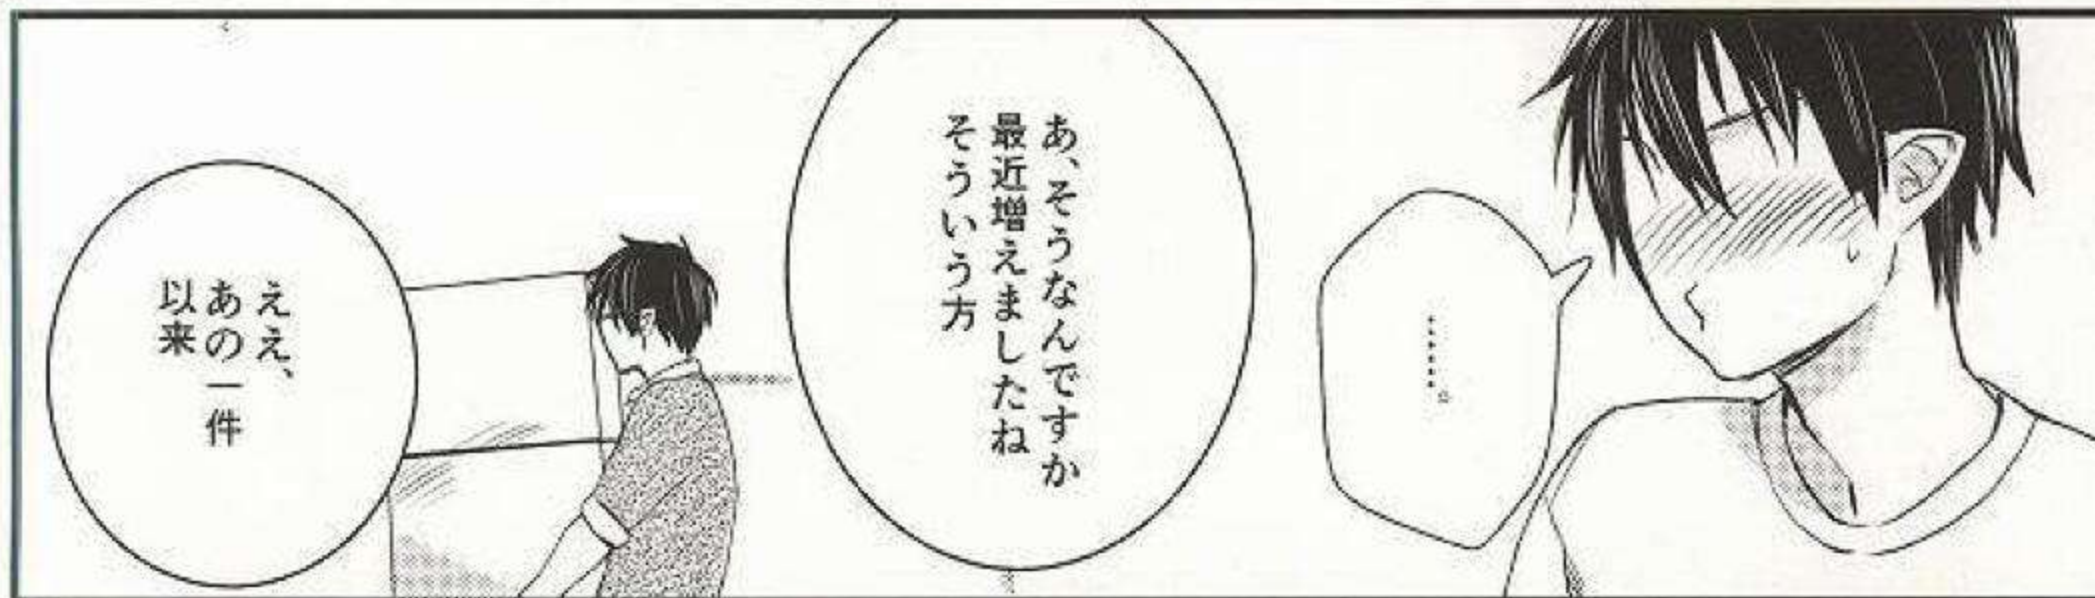 ……。
あ、そうなんですか
最近増えましたね
そういう方
ええ、
あの一件
以来